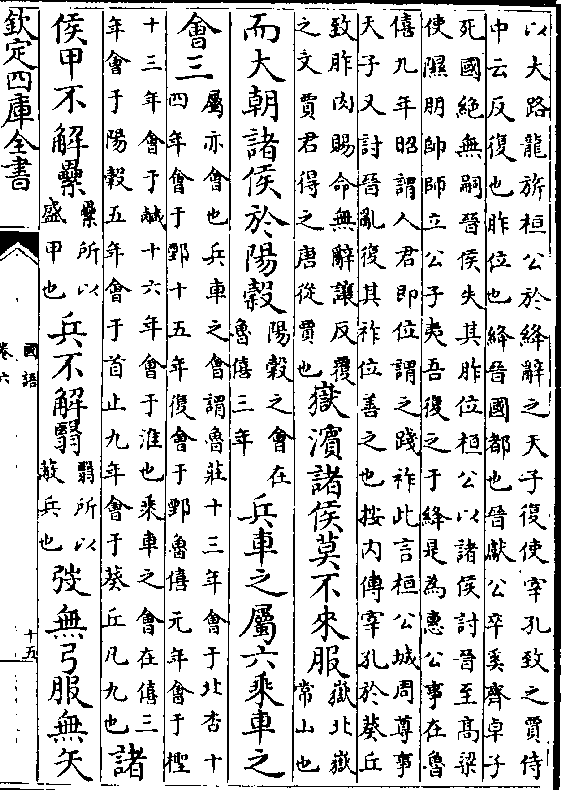 以大路龍旂桓公於絳辭之天子復使宰孔致之賈侍
中云反復也胙位也絳晉國都也晉獻公卒奚齊卓子
死國絶無嗣晉侯失其胙位桓公以諸侯討晉至高梁
使隰朋帥師立公子夷吾復之于絳是為惠公事在魯
僖九年昭謂人君即位謂之踐祚此言桓公城周尊事
天子又討晉亂復其祚位善之也按内傳宰孔於葵丘
致胙肉賜命無辭讓反覆
之文賈君得之唐從賈也
嶽濱諸侯莫不來服
嶽北嶽
常山也
而大朝諸侯於陽穀
陽穀之會在
魯僖三年
兵車之屬六乘車之
會三
屬亦會也兵車之會謂魯莊十三年會于北杏十
四年會于鄄十五年復會于鄄魯僖元年會于檉
十三年會于鹹十六年會于淮也乘車之會在僖三
年會于陽穀五年會于首止九年會于葵丘凡九也
諸
侯甲不解纍
纍所以
盛甲也
兵不解翳
翳所以
蔽兵也
弢無弓服無矢
欽定四庫全書
國語
卷六
十五